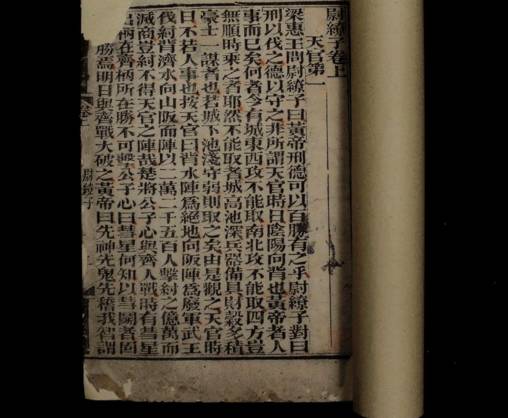 尉繚子卷上
天官第一
梁惠王問尉繚子曰黃帝刑德可以百勝有之乎尉繚子對曰
刑以伐之德以守之非所謂天官時日陰陽向背也黃帝者人
事而已矣何者今有城東西攻不能取南北攻不能取四方豈
無順時乘之者耶然不能取者城高池深兵器備具財穀多積
豪士一謀者也若城下池淺守弱則取之矣由是觀之天官時
日不若人事也按天官曰背水陣爲絕地向阪陣爲廢軍武王
伐紂背濟水向山阪而陣以二萬二千五百人擊紂之億萬而
滅商豈紂不得天官之陣哉楚將公子心與齊人戰時有彗星
出柄在齊柄所在勝不可擊公子心曰彗星何知以彗鬬者固
勝焉明日與齊戰大破之黃帝曰先神先鬼先稽我智謂
卷上
尉繚子